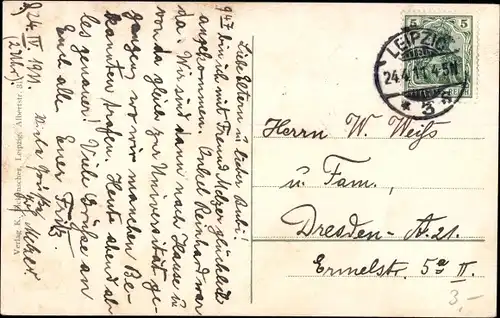 L. 24. IV. 1911.
(2 Uhr.)
Liebe Eltern u. lieber Bubi!
9 47 bin ich mit Freund Melzer glücklich
angekommen. Onkel Reinhard war
da. Wir sind dann nach Hause u.
von da gleich zur Universität ge-
gangen, wo wir manchen Be-
kannten trafen. Heute abend al-
les genauer! Viele Grüße an
Euch alle Euer
Fritz.
Viele Grüße
Verlag K. Leipzig, Albertstr.
LEIPZIG
24.4.11. 4-5N
* 3
5 5
Herrn W. Weiß
u. Fam.,
Dresden-A. 21.
Ermelstr. 5a II.
3.-